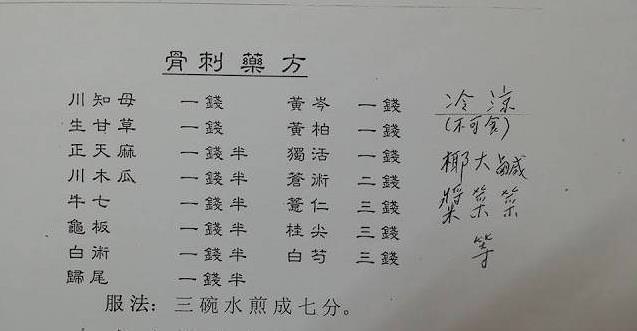 骨刺藥方
川知母 一錢 黃岑 一錢 冷涼
生甘草 一錢 黃柏 一錢 (不可食)
正天麻 一錢半 獨活 一錢 椰大鹹
川木瓜 一錢半 蒼術 二錢 漿菜菜
牛七 一錢半 薏仁 三錢
龜板 一錢半 桂尖 三錢 等
白術 一錢半 白芍 三錢
歸尾 一錢半
服法：三碗水煎成七分。